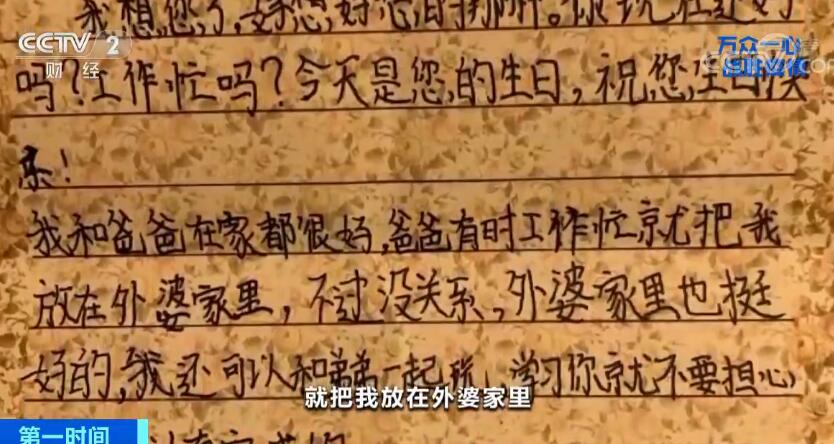 CCTV 2
财经
万众一心
我想您了,好想,好想的那种。你现在还好
吗?工作忙吗?今天是您的生日,祝您生日快
乐!
我和爸爸在家都很好,爸爸有时工作忙就把我
放在外婆家里,不过没关系,外婆家里也挺
好的,我还可以和弟弟一起玩,学习你就不要担心
就把我放在外婆家里
第一时间